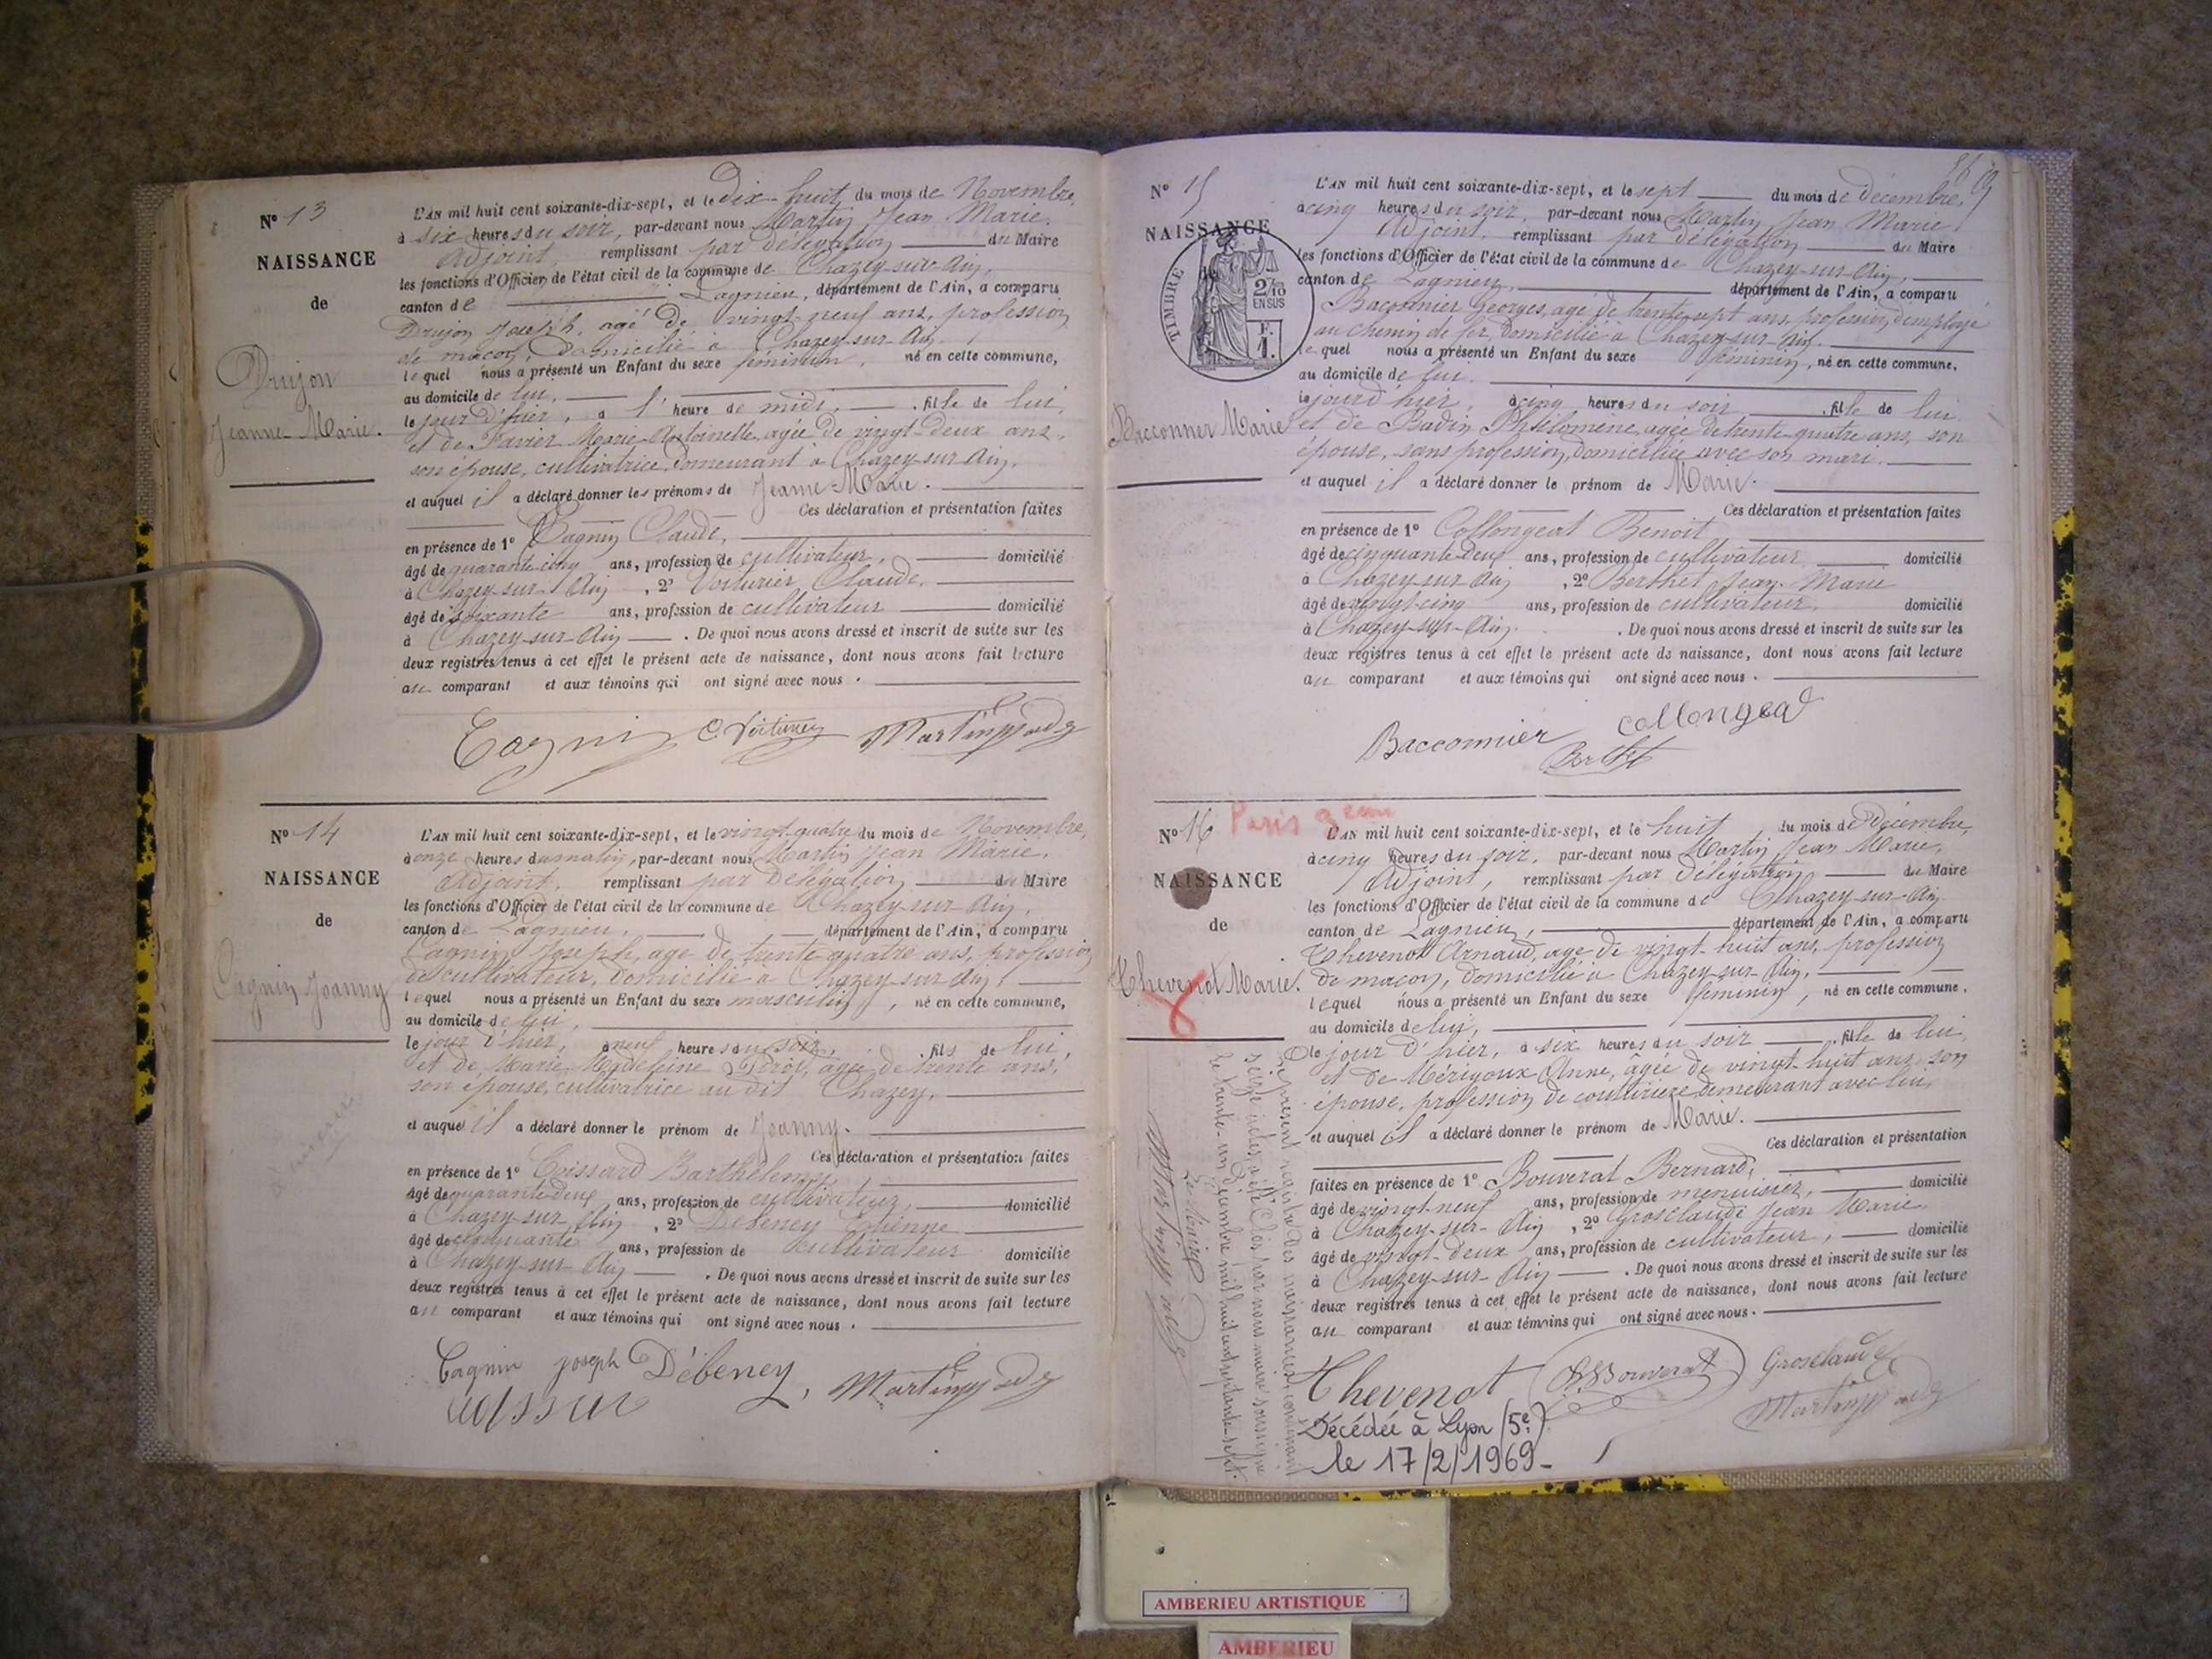 N° 13
NAISSANCE
de
Drujon
Jeanne-Marie.
L'AN mil huit cent soixante-dix-sept, et le Dix-huit du mois de Novembre,
à six heures du soir, par-devant nous Martin Jean Marie,
Adjoint, remplissant par Délégation du Maire
les fonctions d'Officier de l'état civil de la commune de Chazey-sur-Ain,
canton de Lagnieu, département de l'Ain, a comparu
Drujon Joseph, agé de vingt-neuf ans, profession
de maçon, domicilié à Chazey-sur-Ain,
lequel nous a présenté un Enfant du sexe féminin, né en cette commune,
au domicile de lui,
le jour d'hier, à l' heure de midi, fille de lui,
et de Favier Marie-Antoinette, agée de vingt-deux ans,
son épouse, cultivatrice, demeurant à Chazey-sur-Ain,
et auquel il a déclaré donner les prénoms de Jeanne-Marie.
Ces déclaration et présentation faites
en présence de 1° Cagnin Claude,
âgé de quarante-cinq ans, profession de cultivateur, domicilié
à Chazey-sur-Ain, 2° Voiturier Claude,
âgé de soixante ans, profession de cultivateur domicilié
à Chazey-sur-Ain. De quoi nous avons dressé et inscrit de suite sur les
deux registres tenus à cet effet le présent acte de naissance, dont nous avons fait lecture
au comparant et aux témoins qui ont signé avec nous.
Cagnin C. Voiturier Martin
N° 14
NAISSANCE
de
Cagnin Joanny
L'AN mil huit cent soixante-dix-sept, et le vingt-quatre du mois de Novembre,
à onze heures du matin, par-devant nous Martin Jean Marie,
Adjoint, remplissant par Délégation du Maire
les fonctions d'Officier de l'état civil de la commune de Chazey-sur-Ain,
canton de Lagnieu, département de l'Ain, a comparu
Cagnin Joseph, agé de trente-quatre ans, profession
de cultivateur, domicilié à Chazey-sur-Ain,
lequel nous a présenté un Enfant du sexe masculin, né en cette commune,
au domicile de lui,
le jour d'hier, à neuf heures du soir, fils de lui,
et de Marie Magdeleine agée de trente ans,
son épouse, cultivatrice au dit Chazey,
et auquel il a déclaré donner le prénom de Joanny.
Ces déclaration et présentation faites
en présence de 1° Barthélemy,
âgé de quarante-deux ans, profession de cultivateur, domicilié
à Chazey-sur-Ain, 2° Debeney Etienne
âgé de cinquante ans, profession de cultivateur domicilié
à Chazey-sur-Ain. De quoi nous avons dressé et inscrit de suite sur les
deux registres tenus à cet effet le présent acte de naissance, dont nous avons fait lecture
au comparant et aux témoins qui ont signé avec nous.
Cagnin joseph Débeney, Martin
N° 15
NAISSANCE
TIMBRE
2/10
EN SUS
F.
1.
Bacconnier Marie
L'AN mil huit cent soixante-dix-sept, et le sept du mois de décembre,
à cinq heures du soir, par-devant nous Martin Jean Marie,
Adjoint, remplissant par délégation du Maire
les fonctions d'Officier de l'état civil de la commune de Chazey-sur-Ain,
canton de Lagnieu, département de l'Ain, a comparu
Bacconnier Georges, agé de trente-sept ans, profession d'employé
au chemin de fer, domicilié à Chazey-sur-Ain.
lequel nous a présenté un Enfant du sexe féminin, né en cette commune,
au domicile de lui.
le jour d'hier, à cinq heures du soir, fille de lui,
et de Badin Philomène, agée de trente-quatre ans, son
épouse, sans profession, domiciliée avec son mari.
et auquel il a déclaré donner le prénom de Marie.
Ces déclaration et présentation faites
en présence de 1° Collongeat Benoit
âgé de cinquante-deux ans, profession de cultivateur, domicilié
à Chazey-sur-Ain, 2° Berthet Jean-Marie
âgé de vingt-cinq ans, profession de cultivateur, domicilié
à Chazey-sur-Ain. De quoi nous avons dressé et inscrit de suite sur les
deux registres tenus à cet effet le présent acte de naissance, dont nous avons fait lecture
au comparant et aux témoins qui ont signé avec nous.
Bacconnier Collongeat
Berthet
N° 16
Paris
NAISSANCE
de
Chevenot Marie.
L'AN mil huit cent soixante-dix-sept, et le huit du mois de Décembre,
à cinq heures du soir, par-devant nous Martin Jean Marie,
Adjoint, remplissant par Délégation du Maire
les fonctions d'Officier de l'état civil de la commune de Chazey-sur-Ain
canton de Lagnieu, département de l'Ain, a comparu
Chevenot Arnaud, agé de vingt-huit ans, profession
de maçon, domicilié à Chazey-sur-Ain,
lequel nous a présenté un Enfant du sexe féminin, né en cette commune,
au domicile de lui,
le jour d'hier, à six heures du soir fille de lui,
et de Mérigoux Anne, âgée de vingt-huit ans, son
épouse, profession de couturière demeurant avec lui,
et auquel il a déclaré donner le prénom de Marie.
Ces déclaration et présentation
faites en présence de 1° Bouverat Bernard,
âgé de vingt-neuf ans, profession de menuisier, domicilié
à Chazey-sur-Ain, 2° Grosclaude Jean Marie
âgé de vingt-deux ans, profession de cultivateur, domicilié
à Chazey-sur-Ain. De quoi nous avons dressé et inscrit de suite sur les
deux registres tenus à cet effet le présent acte de naissance, dont nous avons fait lecture
au comparant et aux témoins qui ont signé avec nous.
Chevenot Bouverat Grosclaude
Martin
Décédée à Lyon (5e)
le 17/2/1969-
Le présent registre des naissances, contenant
seize actes, a été clos par nous maire soussigné
le trente-un décembre mil huit cent septante-sept.
AMBERIEU ARTISTIQUE
AMBERIEU